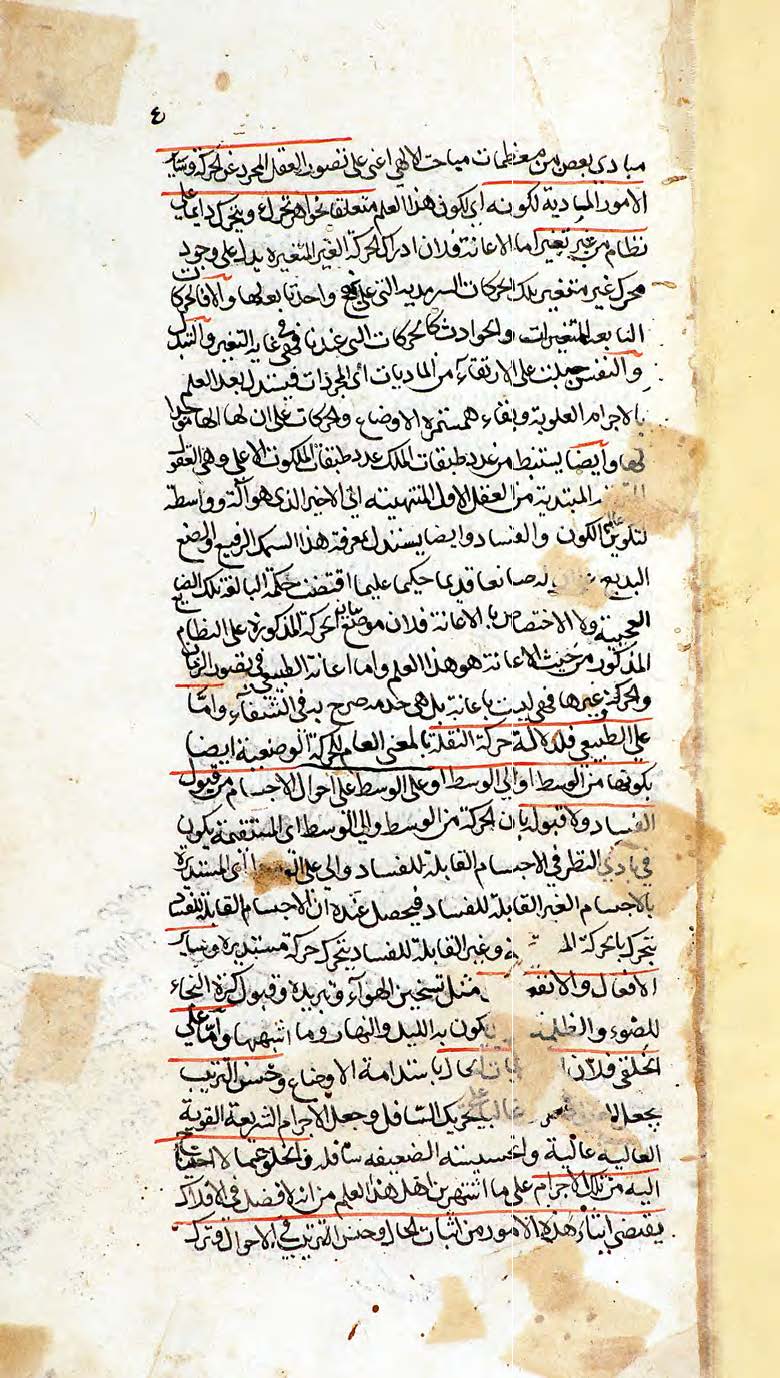 ٤
مبادى بعض من معظمات مباحث الالهى اعنى على تصور العقل المجرد عن الحركة وسائر
الامور المادية لكونه اى لكون هذا العلم متعلقا بجواهر تحرك ويتحرك دايما على
نظام من غير تغير اما الاعانة فلان ادراك الحركة الغير المتغيرة يدل على وجود
محرك غير متغير بتلك الحركات السرمدية التى على نهج واحد تابعة لها والا فالحركات
التابعة للمتغيرات والحوادث كالحركات التى عندنا فهى فى غاية التغير والتبدل
والنفس جبلت على الارتقاء من الماديات الى المجردات فيستدل بعد العلم
بالاجرام العلوية وبقاءهم مستمرة الاوضاع والحركات على ان لها الها موجدا
لها وايضا يستنبط من عدد طبقات الملك عدد طبقات الملكوت الاعلى وهى العقول
المبتدية من العقل الاول المنتهية الى الاخير الذى هو آلة وواسطة
لتكوين عالم الكون والفساد وايضا يستدل بمعرفة هذا السمك الرفيع والصنع
البديع له صانعا قديما حكيما عليما اقتضت حكمة البالغة تلك الصنايع
العجيبة ولا الاختصاص الاعانة فلان موضع الحركة المذكورة على النظام
المذكور من حيث الاعانة هو هذا العلم واما اعانة الطبيعى فى تصور الزمان
والحركة وغيرها فهى ليست باعانة بل هى خدمة صرح به فى الشفاء واما
على الطبيعى فلدلالة حركة النقلة بالمعنى العام للحركة الوضعية ايضا
بكونها من الوسط او الى الوسط او على الوسط على احوال الاجسام من قبول
الفساد ولا قبوله بان الحركة من الوسط والى الوسط اى المستقيمة يكون
فى بادى النظر فى الاجسام القابلة للفساد والى على الوسط اى المستديرة
بالاجسام الغير القابلة للفساد فيحصل عنده ان الاجسام القابلة للفساد
يتحرك بالحركة وغير القابلة للفساد يتحرك حركة مستديرة وساير
الافعال والانفعا مثل تسخين الهوآء وتبريده وقبول كرة البخار
للضوء والظلمة يكون به الليل والنهار وما اشبهها واما على
الخلقى فلان الحال باستدامة الاوضاع وحسن الترتيب
بجعل عاليا بتحريك السافل وجعل الاجرام الشريفة القوية
العالية عالية والخسيسة الضعيفة سافلة والخلو عما لا احتياج
اليه من تلك الاجرام على ما اشتهر بين اهل هذا العلم من انه لا فضل فى الافلاك
يقتضى ايثار هذه الامور من اثبات الحال وحسن الترتيب فى الاحوال وترك